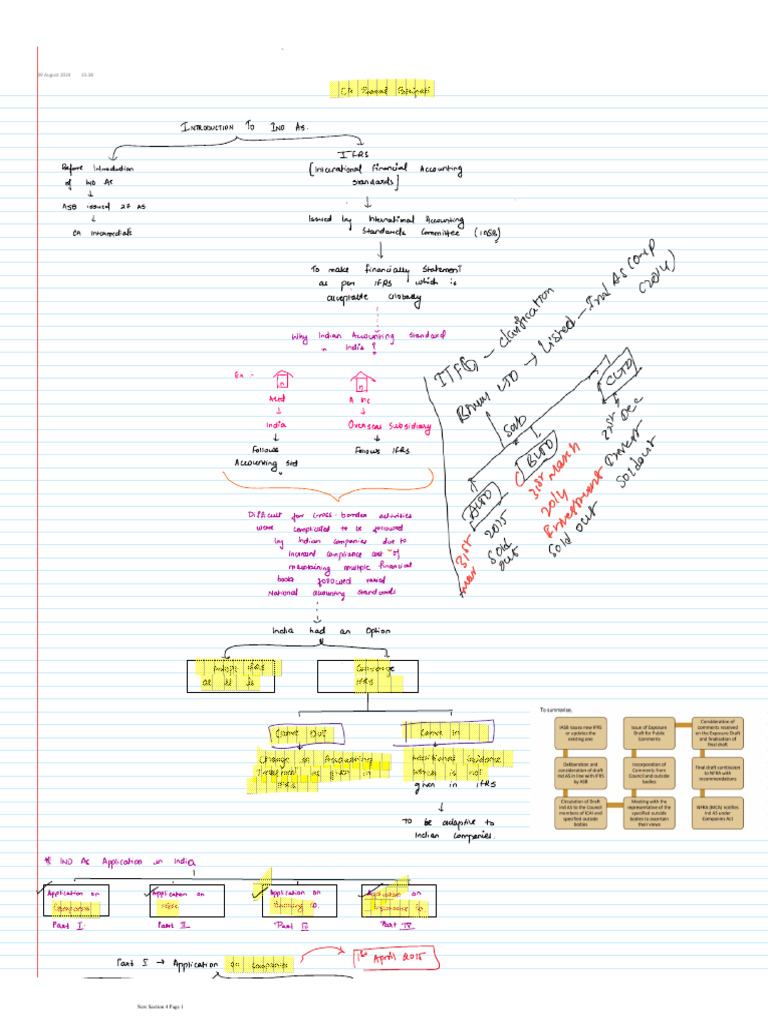 August 2024
INTRODUCTION TO IND AS.
Before Introduction
of IND AS
ASB issued 27 AS
CA Intermediate
IFRS
[International Financial Accounting
standards]
Issued by International Accounting
Standards Committee (IASB)
To make financially statement
as per IFRS which is
acceptable Globally
Why Indian Accounting Standard
in India?
Ex :-
A Ltd
India
Follows
Accounting std
A Inc
Overseas Subsidiary
Follows IFRS
Difficult for cross-border activities
were complicated to be followed
by Indian companies due to
increased compliance cost of
maintaining multiple financial
books followed
National accounting standards
India had an Option
Adopt IFRS
as it is
Converge
IFRS
Carve Out
Carve in
Change in Accounting
treatment as given in
IFRS
Additional Guidance
which is not
given in IFRS
To be adaptive to
Indian companies.
ITFG - Clarification
LTD → Listed - Ind AS comp
(2014)
Sold
ALTD
BLTD
CLTD
31st
mar
2015
Sold
out
31st march
2014
Investment
Sold out
31st Dec
Soldout
To summarise,
IASB issues new IFRS
or updates the
existing one
Deliberation and
consideration of draft
Ind AS in line with IFRS
by ASB
Circulation of Draft
Ind AS to the Council
members of ICAI and
specified outside
bodies
Meeting with the
representative of the
specified outside
bodies to ascertain
their views
Incorporation of
Comments from
Council and outside
bodies
Issue of Exposure
Draft for Public
Comments
Consideration of
comments received
on the Exposure Draft
and finalisation of
final draft
Final draft submission
to NFRA with
recommendations
NFRA (MCA) notifies
Ind AS under
Companies Act
IND AS Application in India
Application on
Companies
Part I
Application on
Part II
Application on
Banking Co.
Part III
Application on
Insurance Co.
Part IV
Part I → Application on Companies
1st April 2015
New Section 4 Page 1